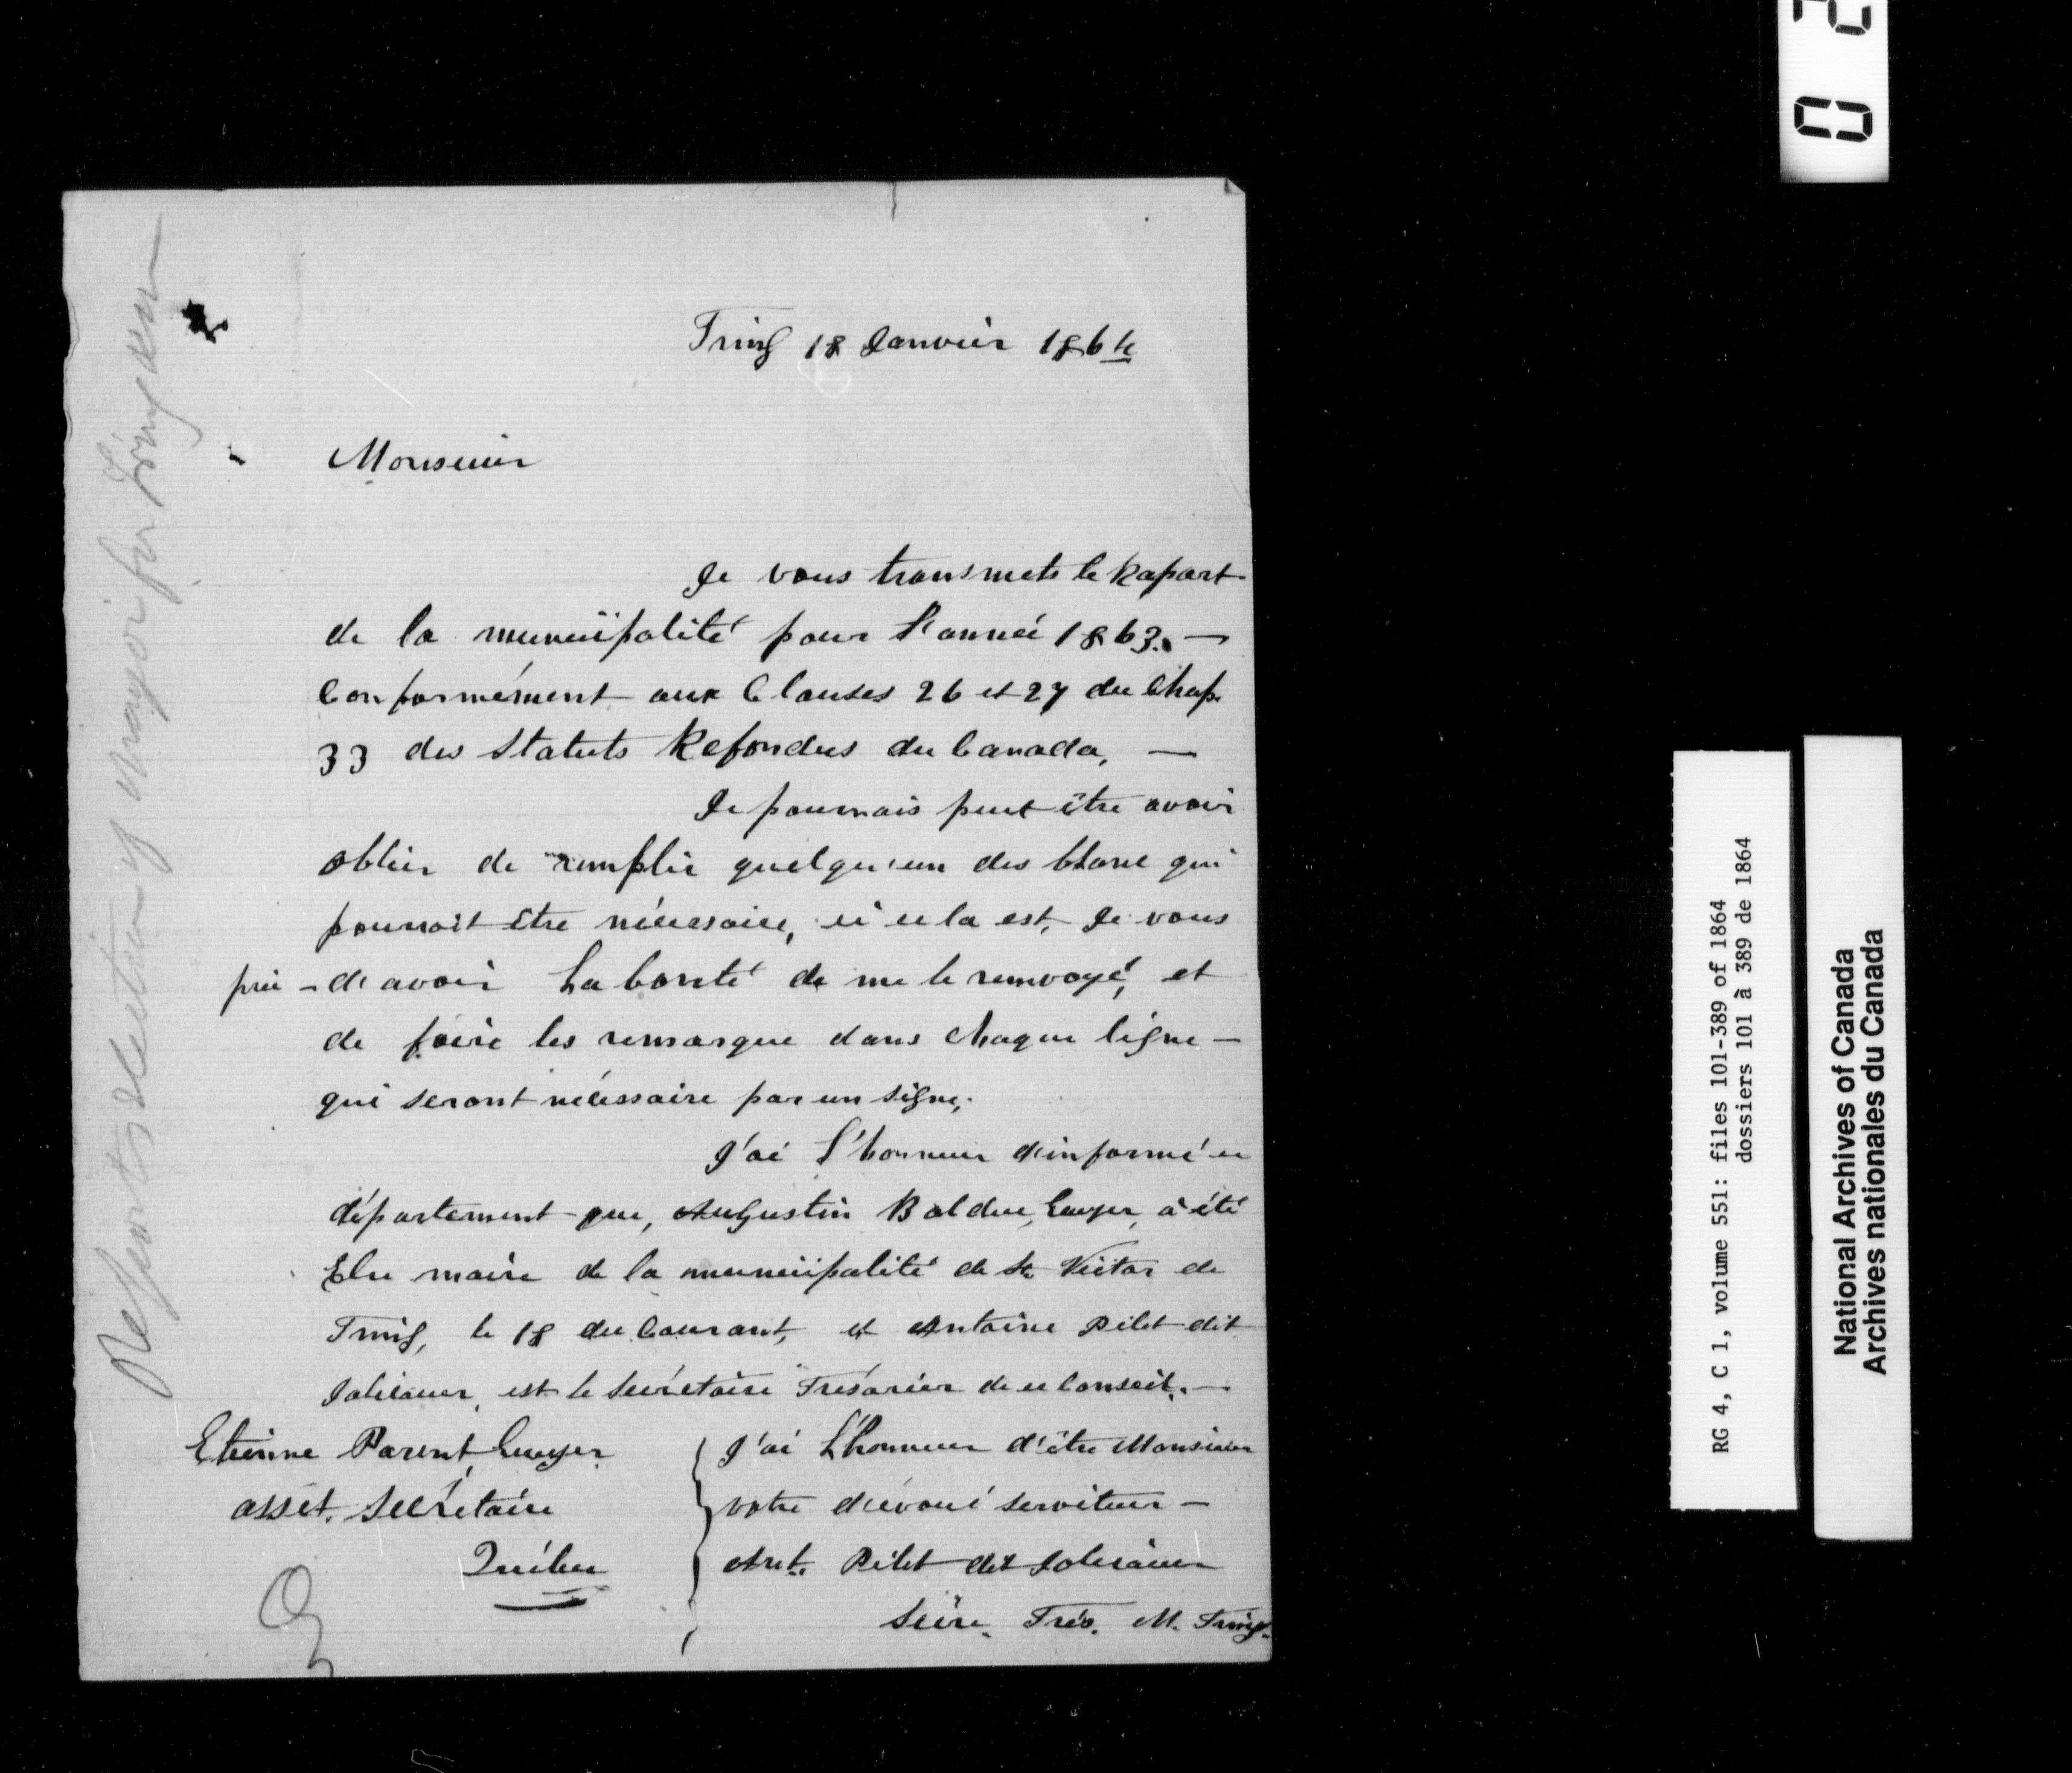 Tring 18 Janvier 1864
Monsieur
Je vous transmets le Raport
de la municipalité pour l'année 1863. —
Conformément aux Clauses 26 et 27 du Chap.
33 des Statuts Refondus du Canada, —
Je pourrais peut être avoir
oblier de remplir quelqu'un des blanc qui
pourrait être nécessaire, si cela est, Je vous
prie - d'avoir La bonté de me le renvoyé, et
de faire les remarque dans chaque ligne —
qui seront nécessaire par un signe,
J'ai l'honneur d'informé ce
département que, Augustin Bolduc, Ecuyer, a été
Elu maire de la municipalité de St. Victor de
Tring, le 18 du Courant, et Antoine Pilet dit
Jolicoeur, est le Secrétaire Trésorier de ce Conseil. —
Etienne Parent, Ecuyer
asset. Secrétaire
Québec
J'ai L'honneur d'être Monsieur
votre dévoué serviteur —
Ant. Pilet dit Jolicoeur
Sécre. Trés. M. Tring.
Reports election of Mayor for Tring
RG 4, C 1, volume 551: files 101-389 of 1864
dossiers 101 à 389 de 1864
National Archives of Canada
Archives nationales du Canada